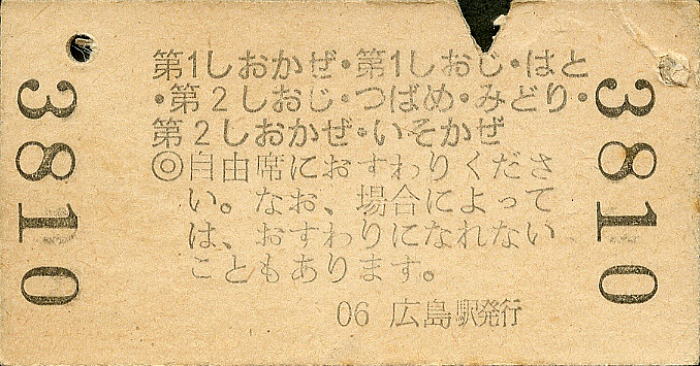 3810
第1しおかぜ・第1しおじ・はと
・第2しおじ・つばめ・みどり・
第2しおかぜ・いそかぜ
◎自由席におすわりくださ
い。なお、場合によって
は、おすわりになれない
こともあります。
06 広島駅発行
3810